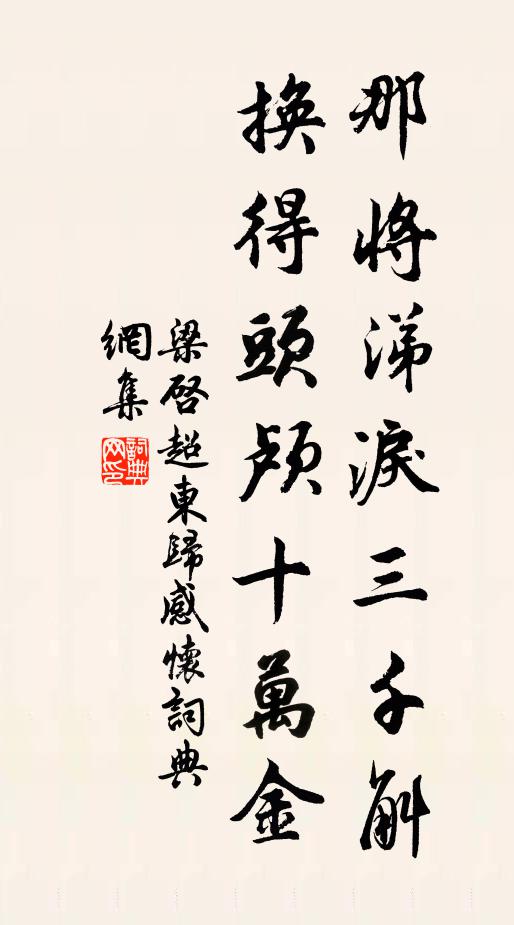 那將涕淚三千斛
換得頭顱十萬金
梁啓超東歸感懷詞典
網集
詞典
网印